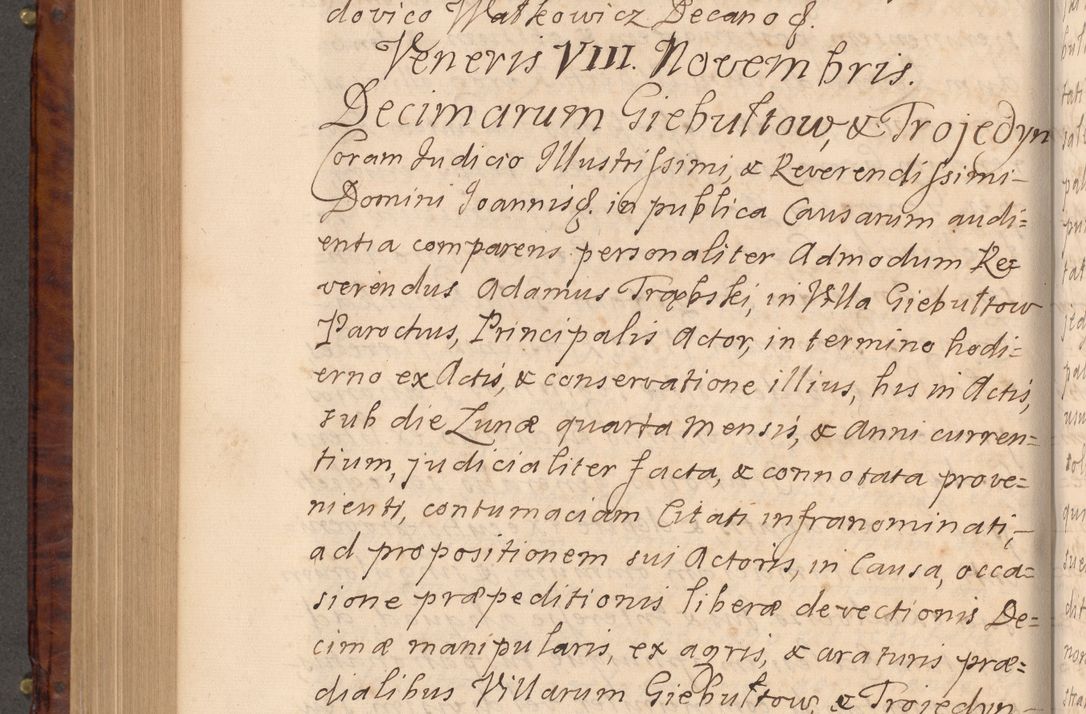 dovico Watkowicz Decano &.
Veneris VIII. Novembris.
Decimarum Giebułtow, & Trojedyn
Coram Iudicio Illustrissimi, & Reverendissimi
Domini Joannis &. in publica Causarum audi=
entia comparens personaliter Admodum Re=
verendus Adamus Trąbski, in Villa Giebułtow
Parochus, Principalis Actor, in termino hodi=
erno ex Actis, & conservatione illius, his in Actis,
sub die Lunæ quarta mensis, & Anni curren=
tium, judicialiter facta, & connotata prove=
nienti, contumaciam Citati infranominati,
ad propositionem sui Actoris, in Causa, occa=
sione præpeditionis liberæ devectionis De=
cimæ manipularis, ex agris, & araturis præ=
dialibus Villarum Giebułtow, & Trojedyn